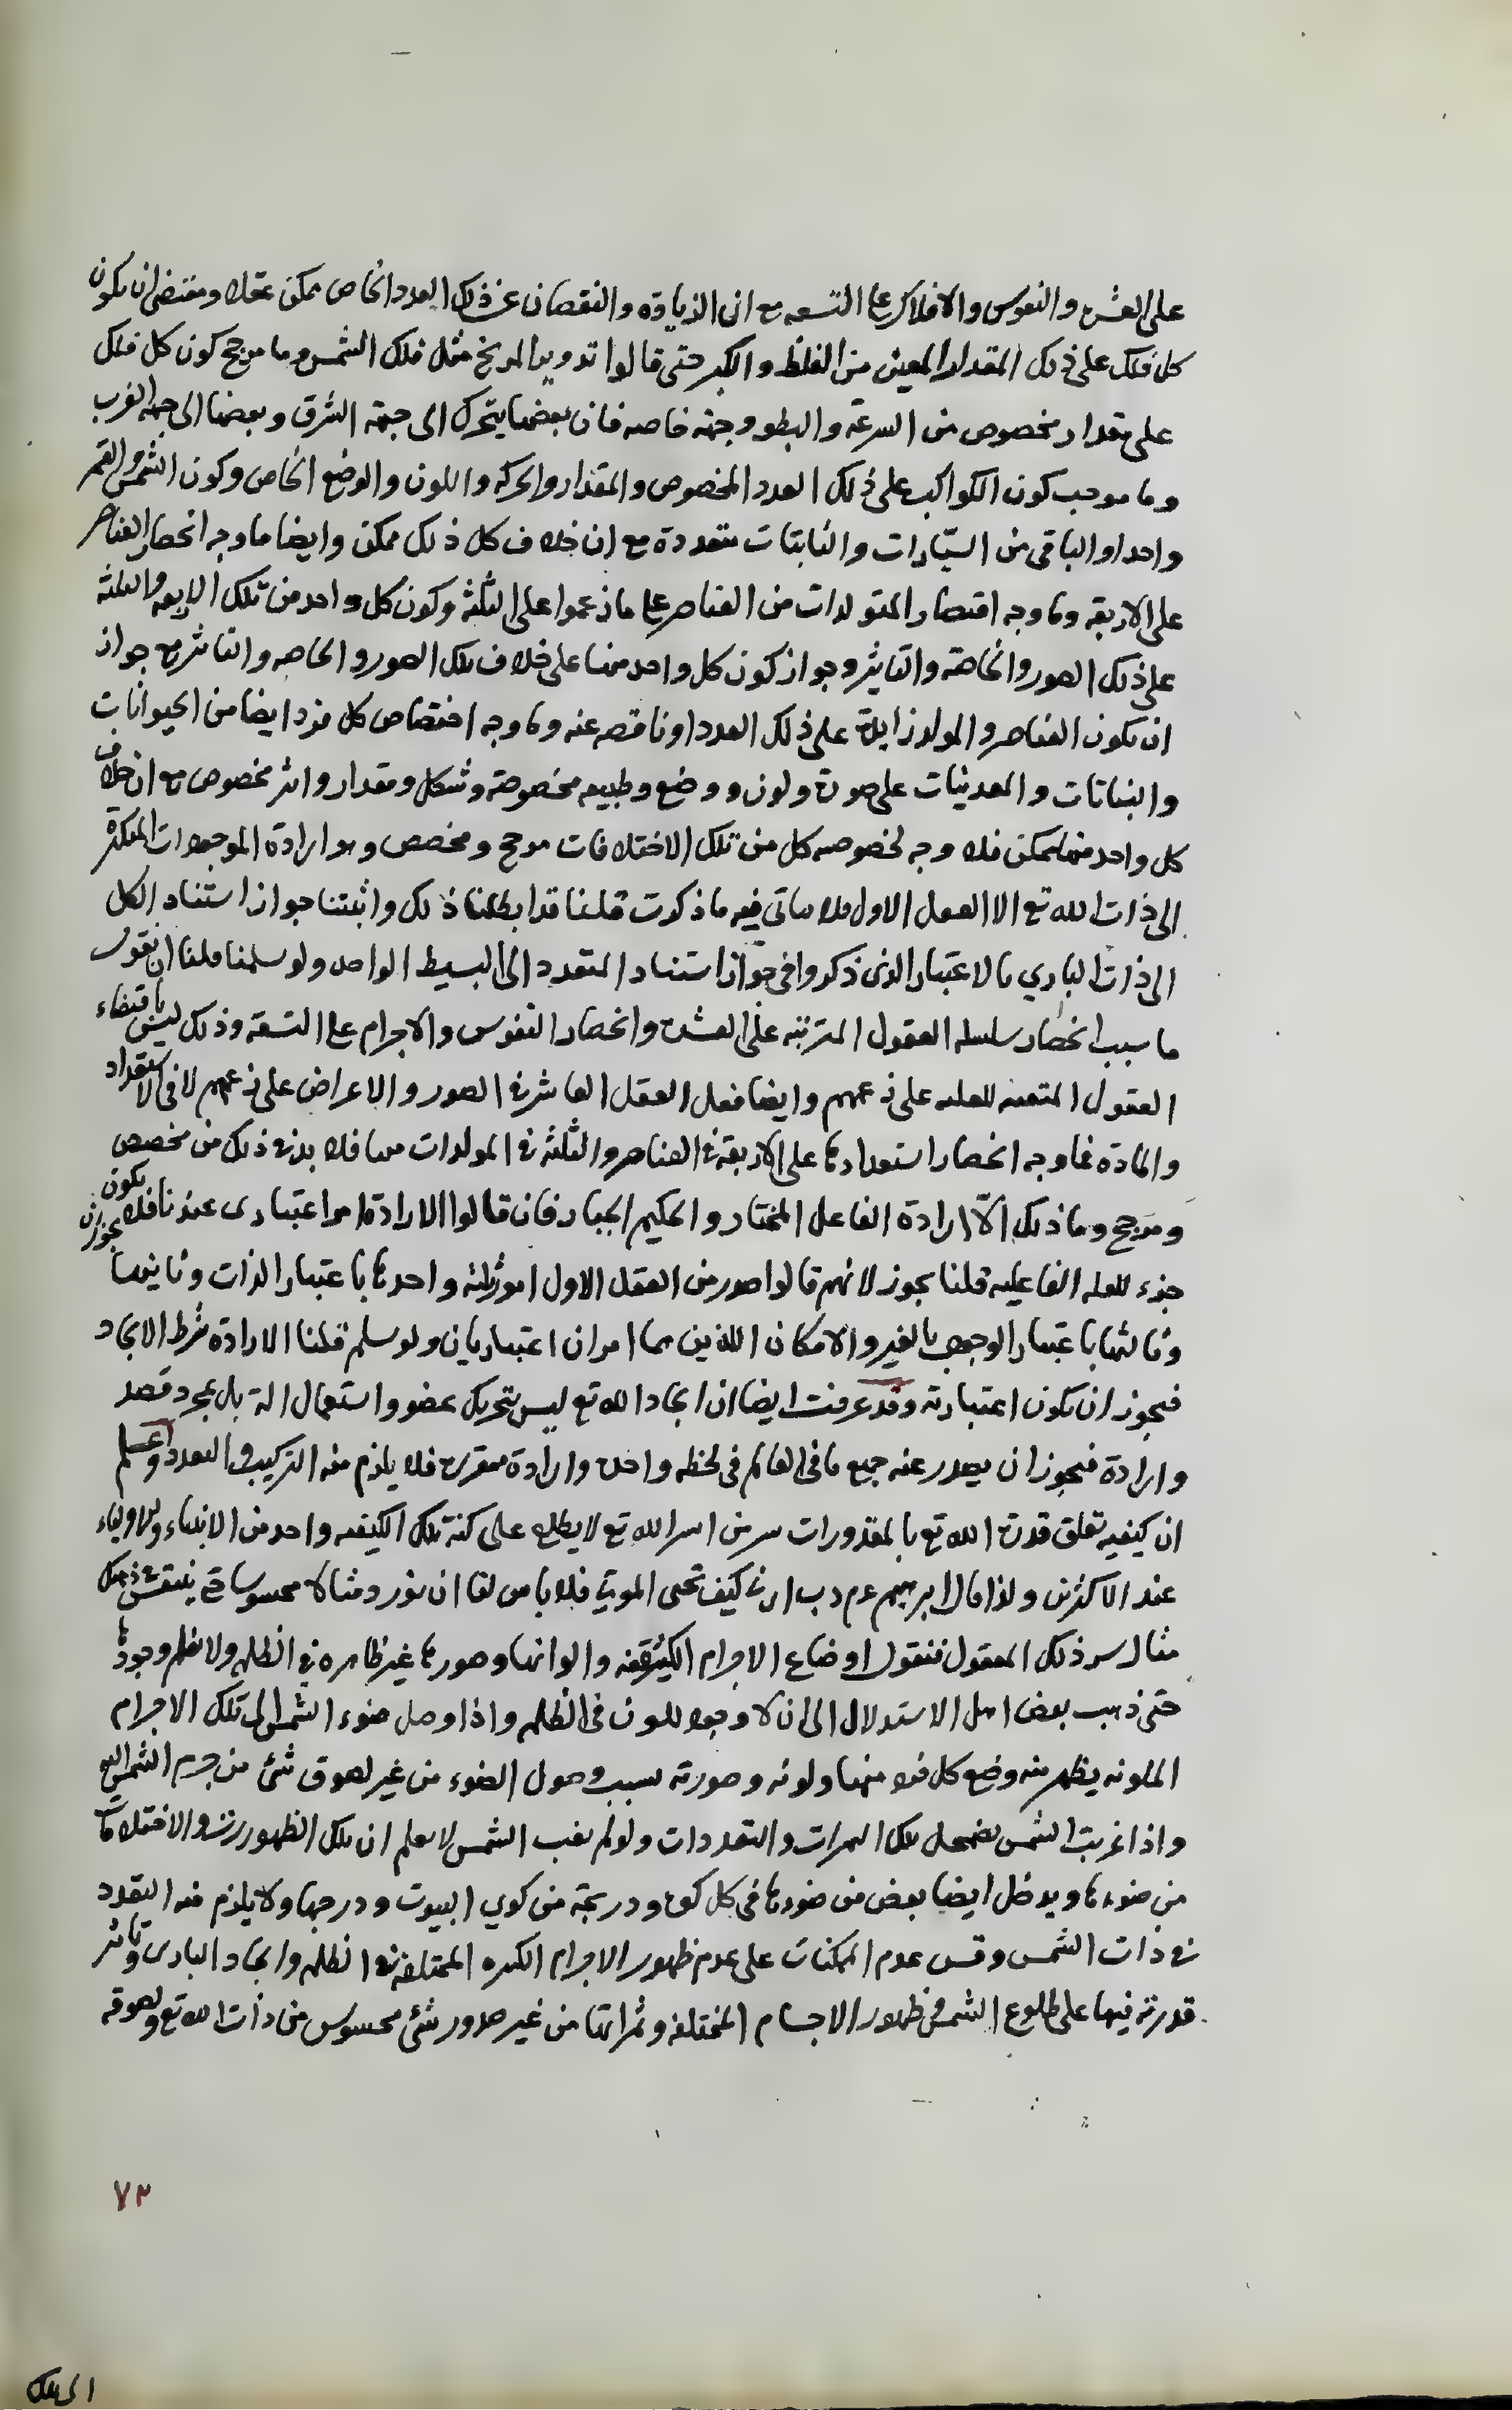 على العشرة والنفوس والافلاك على التسعه مع ان الزيادة والنقصان عن ذلك العدد الخاص ممكن عقلا ومقتضى ان يكون
كل فلك على ذلك المقدار المعين من الغلظ والكبر حتى قالوا تدوير المريخ مثل فلك الشمس وما مرجح كون كل فلك
على مقدار مخصوص من السرعة والبطو وجهة خاصه فان بعضها يتحرك الى جهة الشرق وبعضها الى جهة الغرب
وما موجب كون الكواكب على ذلك العدد المخصوص والمقدار والحركه واللون والوضع الخاص وكون الشمس والقمر
واحدا والباقى من السيّارات والثابتات متعددة مع ان خلاف كل ذلك ممكن وايضا ما وجه انحصار العناصر
على الاربعة وما وجه اقتصار المتولدات من العناصر على ما زعموا على الثلثة وكون كل واحد من تلك الاربعه والثلثه
على ذلك الصور والخاصة والتاثير وجواز كون كل واحد منها على خلاف تلك الصور والخاصه والتاثير مع جواز
ان يكون العناصر والمولد زايدة على ذلك العدد او ناقصه عنه وما وجه اختصاص كل فرد ايضا من الحيوانات
والنباتات والمعدنيات على صورة ولون ووضع وطبيعه مخصوصة وشكل ومقدار واثر مخصوص مع ان خلاف
كل واحد منها ممكن فلا وجه لخصوصه كل من تلك الاختلافات مرجح ومخصص وهو ارادة الموجودات المتكثرة
الى ذات الله تع الا العقل الاول فلا ياتى فيه ما ذكرت قلنا قد ابطلنا ذلك واثبتنا جواز استناد الكل
الى ذات البارى بالاعتبار الذى ذكروا فى جواز استناد المتعدد الى البسيط الواحد ولو سلمنا فلنا ان نقول
ما سبب انحصار سلسله العقول المترتبه على العشرة وانحصار النفوس والاجرام على التسعة وذلك ليس باقتضاء
العقول المتعينه للعليه على زعمهم وايضا فعل العقل العاشر فى الصور والاعراض على زعمهم لا فى الاستعداد
والمادة فما وجه انحصار استعدادها على الاربعة فى العناصر والثلثه فى المولدات منها فلا بد فى ذلك من مخصص
ومرجح وما ذلك الّا ارادة الفاعل المختار والحكيم الجبار فان قالوا الارادة امر اعتبارى عندنا فلا يجوز ان يكون
جزء للعله الفاعليه قلنا يجوز لانهم قالوا صدر من العقل الاول امور ثلثه واحدها باعتبار الذات وثانيها
وثالثها باعتبار الوجوب بالغير والامكان اللذين هما امران اعتباريان ولو سلم قلنا الارادة شرط الايجاد
فيجوز ان يكون اعتبارية وقد عرفت ايضا ان ايجاد الله تع ليس بتحريك عضو واستعمال الة بل بمجرد قصد
وارادة فيجوز ان يصدر عنه جميع ما فى العالم فى لحظه واحدة وارادة فلا يلزم منه التركيب والتعدد واعلم
ان كيفيه تعلق قدرة الله تع بالمقدورات سر من اسرا الله تع لا يطلع على كنه تلك الكيفيه واحد من الانبياء والاولياء
عند الاكثرين ولذا قال ابرهيم عم رب ارنى كيف تحيى الموتى فلا باس لنا ان نورد مثالا محسوسا حتى ينتقش
مثال سر ذلك المعقول فنقول اوضاع الاجرام الكثيفه والوانها وصورها غير ظاهره فى الظلمه ولا نعلم وجودها
حتى ذهب بعض اهل الاستدلال الى ان لا وجود للون فى الظلمه واذا وصل ضوء الشمس الى تلك الاجرام
الملونه يظهر منه وضع كل فرد منها ولونه وصورته بسبب وصول الضوء من غير لصوق شئ من جرم الشمس اليه
واذا غربت الشمس يضمحل تلك والتعددات ولو لم تغب الشمس لا يعلم ان تلك الظهور والاختلافات
من ضوءها ويدخل ايضا بعض من ضوءها فى كل كوة ودريجة من كوي البيوت ودرجها ولا يلزم منه التعدد
فى ذات الشمس وقس عدم الممكنات على عدم ظهور الاجرام المختلفه فى الظلمه وايجاد البارى وتاثير
قدرته فيها على طلوع الشمس وظهور الاجسام المختلفه وثمراتها من غير صدور شئ محسوس من ذات الله تع ولصوقه
٧٢
الى تلك